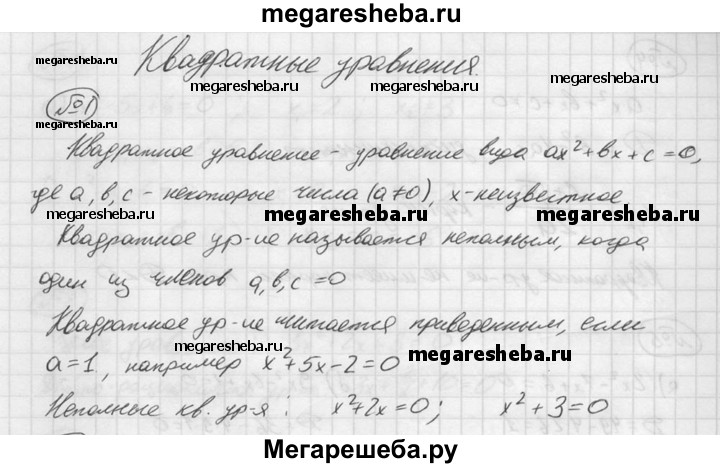 megaresheba.ru
Квадратные уравнения.
megaresheba.ru megaresheba.ru megaresheba.ru
№1 megaresheba.ru megaresheba.ru
Квадратное уравнение - уравнение вида ax²+bx+c=0,
где a, b, c - некоторые числа (a≠0), x-неизвестное
megaresheba.ru megaresheba.ru megaresheba.ru
Квадратное ур-ие называется неполным, когда
один из членов a, b, c = 0
Квадратное ур-ие читается приведенным, если
megaresheba.ru megaresheba.ru
a=1, например x²+5x-2=0
megaresheba.ru
Неполные кв. ур-я: x²+2x=0; x²+3=0
Мегарешеба.ру